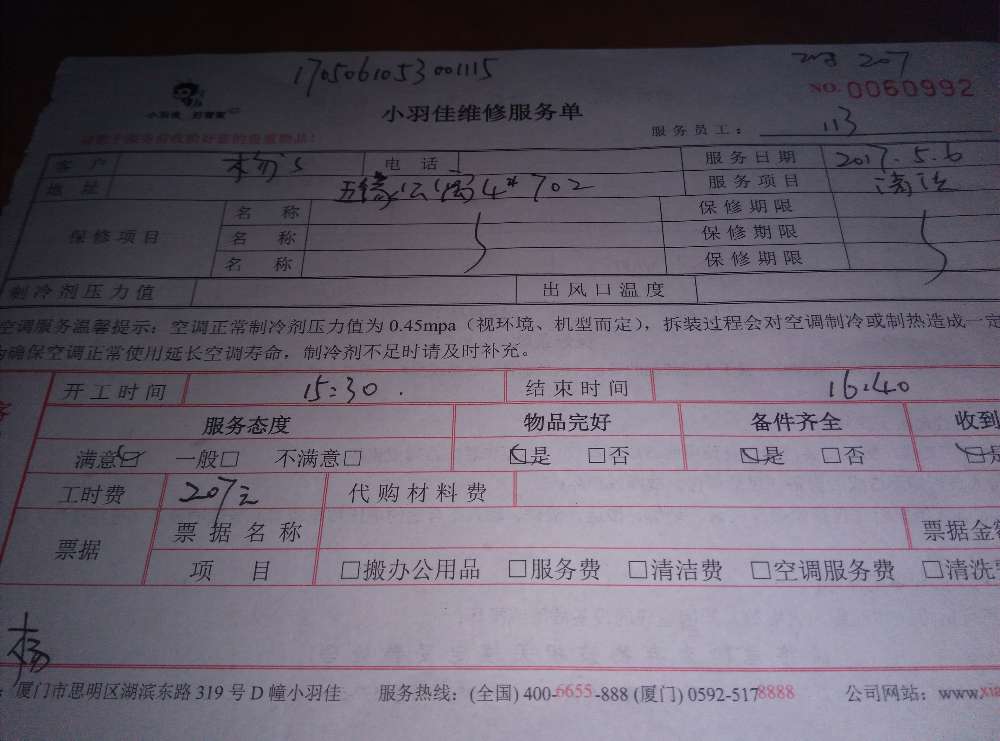 1705061053001115
207
NO. 0060992
小羽佳 好管家
小羽佳维修服务单
服务员工: 113
客户 杨's 电话 服务日期 2017.5.6
地址 五缘公寓4# 702 服务项目 清洗
保修项目 名称 保修期限
名称 保修期限
名称 保修期限
制冷剂压力值 出风口温度
空调服务温馨提示: 空调正常制冷剂压力值为 0.45mpa (视环境、机型而定), 拆装过程会对空调制冷或制热造成一定
确保空调正常使用延长空调寿命, 制冷剂不足时请及时补充。
开工时间 15:30 结束时间 16:40
服务态度 物品完好 备件齐全 收到
满意☑ 一般□ 不满意□ ☑是 □否 ☑是 □否
工时费 207元 代购材料费
票据 票据名称 票据金额
项目 □搬办公用品 □服务费 □清洁费 □空调服务费 □清洗
杨
厦门市思明区湖滨东路 319 号 D 幢小羽佳 服务热线: (全国) 400-6655-888 (厦门) 0592-5178888 公司网站: www.xia